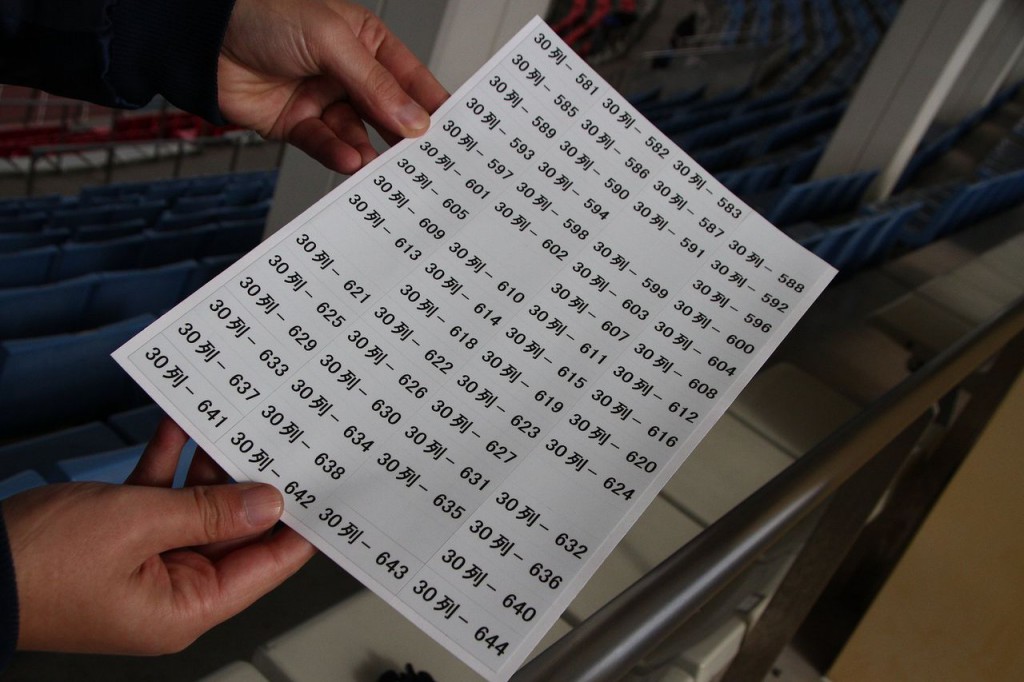 30列− 581 30列− 582 30列− 583
30列− 585 30列− 586 30列− 587 30列− 588
30列− 589 30列− 590 30列− 591 30列− 592
30列− 593 30列− 594 30列− 596
30列− 597 30列− 598 30列− 599 30列− 600
30列− 601 30列− 602 30列− 603 30列− 604
30列− 605 30列− 607 30列− 608
30列− 609 30列− 610 30列− 611 30列− 612
30列− 613 30列− 614 30列− 615 30列− 616
30列− 618 30列− 619 30列− 620
30列− 621 30列− 622 30列− 623 30列− 624
30列− 625 30列− 626 30列− 627
30列− 629 30列− 630 30列− 631 30列− 632
30列− 633 30列− 634 30列− 635 30列− 636
30列− 637 30列− 638 30列− 640
30列− 641 30列− 642 30列− 643 30列− 644